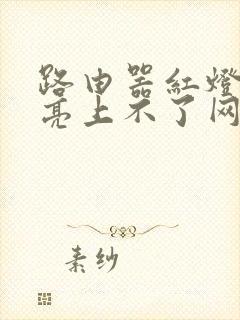 路由器紅燈
亮上不了网
素纱